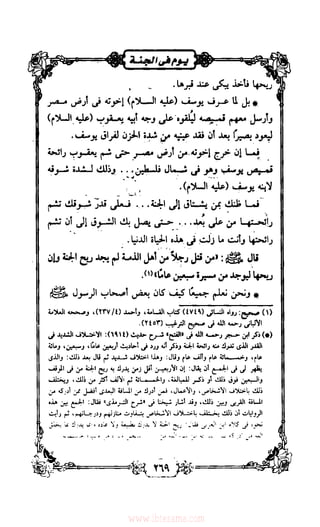 يـوم فى الجنـة
ريحها فأخذ يبكى عند قبرها.
* بل لما عـرف يوسـف (عليه السـلام) إخوته فى أرض مـصر
وأرسل معهم قميـصه ليُلقوه على وجه أبيه يعقـوب (عليه السـلام)
ليعود بصيرًا بعد أن فقد عينيه من شدة الحزن لفراق يوسف.
فمـا إن خرج إخوته من أرض مصـر حتى شم يعقوب رائحة
قميـص يوسف وهو فى شـمال فلـسطين.. وذلك لـشدة شـوقه
لابنه يوسف (عليه السـلام).
فما ظنك بمن يشتاق إلى الجنة... فعلى قدر شـوقك تشم
رائحتها من على بُعد... حتى يصل بك الشـوق إلى أن تشم
رائحتها وأنت ما زلت فى هذه الحياة الدنيا.
قال ﷺ: «من قتل رجلاً من أهل الذمة لم يجد ريح الجنة وإن
ريحها ليوجد من مسيرة سبعين عامًا»(١).
* ونحن نعلم جميعًا كيف كان بعض أصحاب الرسول ﷺ
(١) صحيح: رواه النسائى (٤٧٤٩) كتاب القسامة، وأحمد (٢٣٧/٤)، وصححه العلامة
الألبانى رحمه الله فى صحيح الترغيب (٢٤٥٣).
(*) ذكر ابن حجر رحمه الله فى «الفتح» شرح حديث (٦٩١٤): الاختلاف الشديد فى
القدر الذى تدرك منه رائحة الجنة وذكر أنه ورد فى أحاديث أربعين عامًا، وسبعين، ومائة
عام، وخمسمائة عام وألف عام وقال: وهذا اختلاف شديد ثم قال بعد ذلك: والذى
يظهر لى فى الجمع أن يقال: إن الأربعين أقل زمن يدرك به ريح الجنة من فى الموقف
والسبعين فوق ذلك أو ذكر للمبالغة، والخمسمائة ثم الألف أكثر من ذلك، ويختلف
ذلك باختلاف الأشخاص، والأعمال، فمن أدركه من المسافة البعدى أفضل ممن أدركه من
المسافة القربى وبين ذلك، وقد أشار شيخنا فى «شرح الترمذى» فقال: الجمع بين هذه
الروايات أن ذلك يختلف باختلاف الأشخاص بتفاوت منازلهم ودرجاتهم، ثم رأيت
نحوه فى كلام ابن العربى فقال: ريح الجنة لا يدرك بطبيعة ولا عادة، وإنما يدرك بما يخلق
٢٦٩